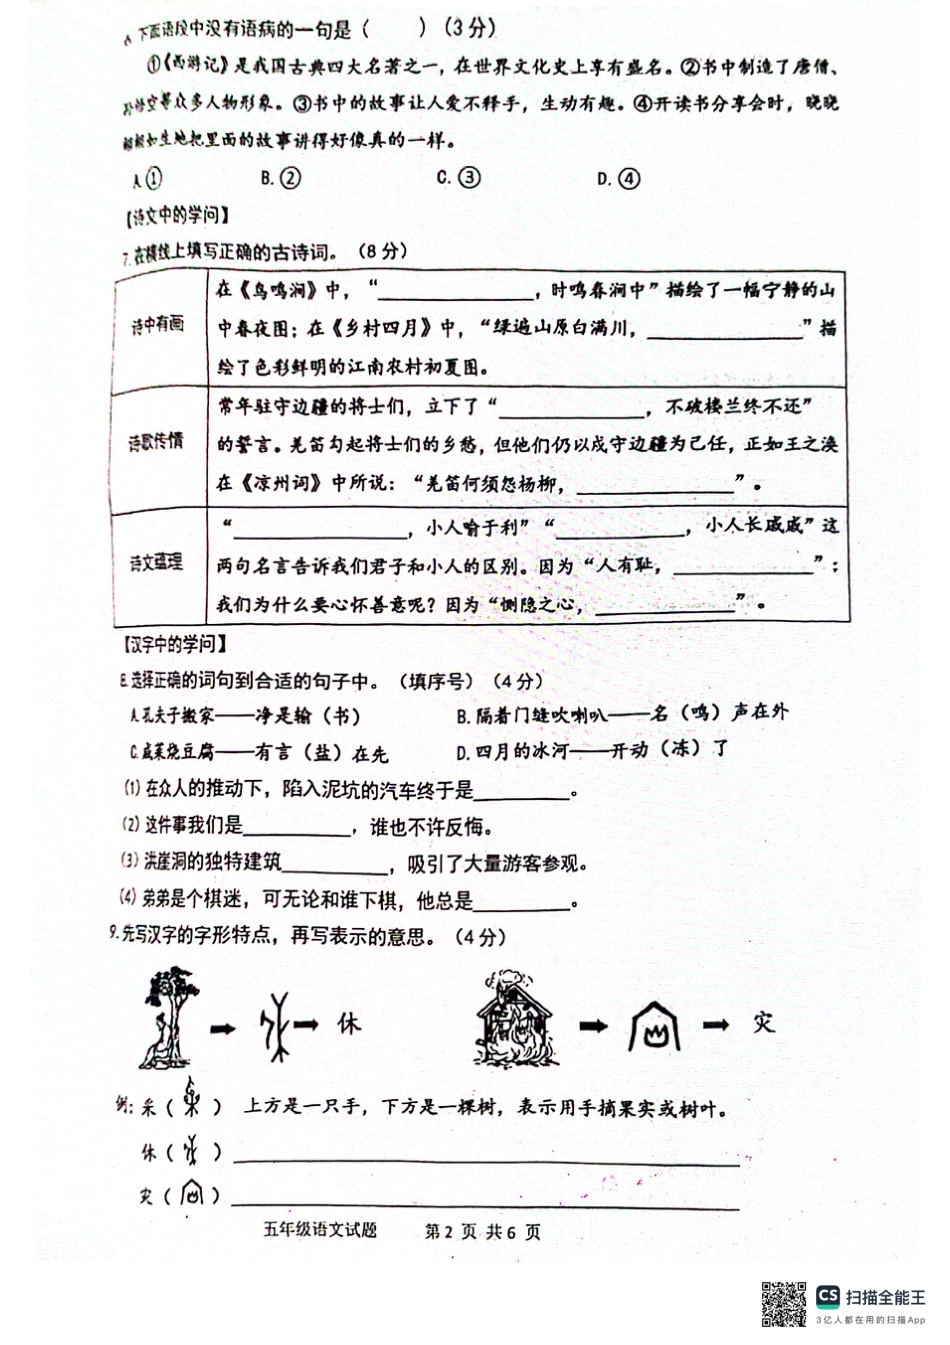 下面语段中没有语病的一句是（ ）（3分）
①《西游记》是我国古典四大名著之一，在世界文化史上享有盛名。②书中制造了唐僧、
孙悟空等众多人物形象。③书中的故事让人爱不释手，生动有趣。④开读书分享会时，晓晓
栩栩如生地把里面的故事讲得好像真的一样。
A.① B.② C.③ D.④
【诗文中的学问】
7.在横线上填写正确的古诗词。（8分）
诗中有画
在《鸟鸣涧》中，“____________，时鸣春涧中”描绘了一幅宁静的山
中春夜图；在《乡村四月》中，“绿遍山原白满川，____________”描
绘了色彩鲜明的江南农村初夏图。
诗歌传情
常年驻守边疆的将士们，立下了“____________，不破楼兰终不还”
的誓言。羌笛勾起将士们的乡愁，但他们仍以戍守边疆为己任，正如王之涣
在《凉州词》中所说：“羌笛何须怨杨柳，____________”。
诗文蕴理
“____________，小人喻于利”“____________，小人长戚戚”这
两句名言告诉我们君子和小人的区别。因为“人有耻，____________”；
我们为什么要心怀善意呢？因为“恻隐之心，____________”。
【汉字中的学问】
8.选择正确的词句到合适的句子中。（填序号）（4分）
A.孔夫子搬家——净是输（书） B.隔着门缝吹喇叭——名（鸣）声在外
C.咸菜烧豆腐——有言（盐）在先 D.四月的冰河——开动（冻）了
⑴在众人的推动下，陷入泥坑的汽车终于是________。
⑵这件事我们是________，谁也不许反悔。
⑶洪崖洞的独特建筑________，吸引了大量游客参观。
⑷弟弟是个棋迷，可无论和谁下棋，他总是________。
9.先写汉字的字形特点，再写表示的意思。（4分）
休 灾
例：采（ ） 上方是一只手，下方是一棵树，表示用手摘果实或树叶。
休（ ）____________
灾（ ）____________
五年级语文试题 第2页 共6页
CS 扫描全能王
3亿人都在用的扫描App